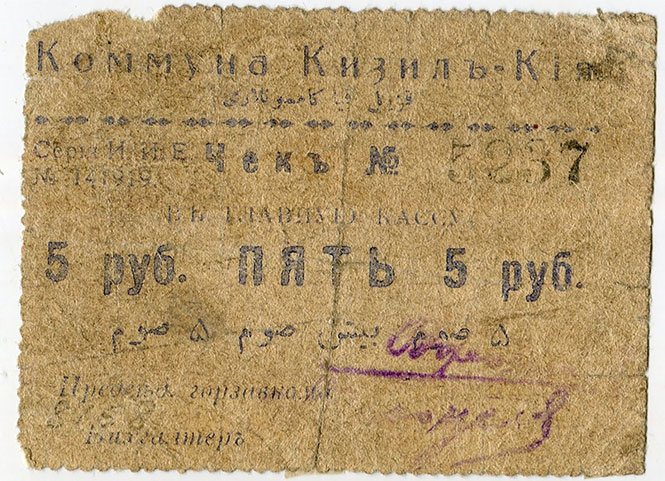 Коммуна Кизилъ-Кія
قزيل قيا
Серія И. И. Е.
№ 141919.
Чекъ № 5237
ВЪ ГЛАВНУЮ КАССУ
5 руб. ПЯТЬ 5 руб.
۵ صوم بيش صوم ۵ صوم
Предсѣд. горзавкома
Бухгалтеръ